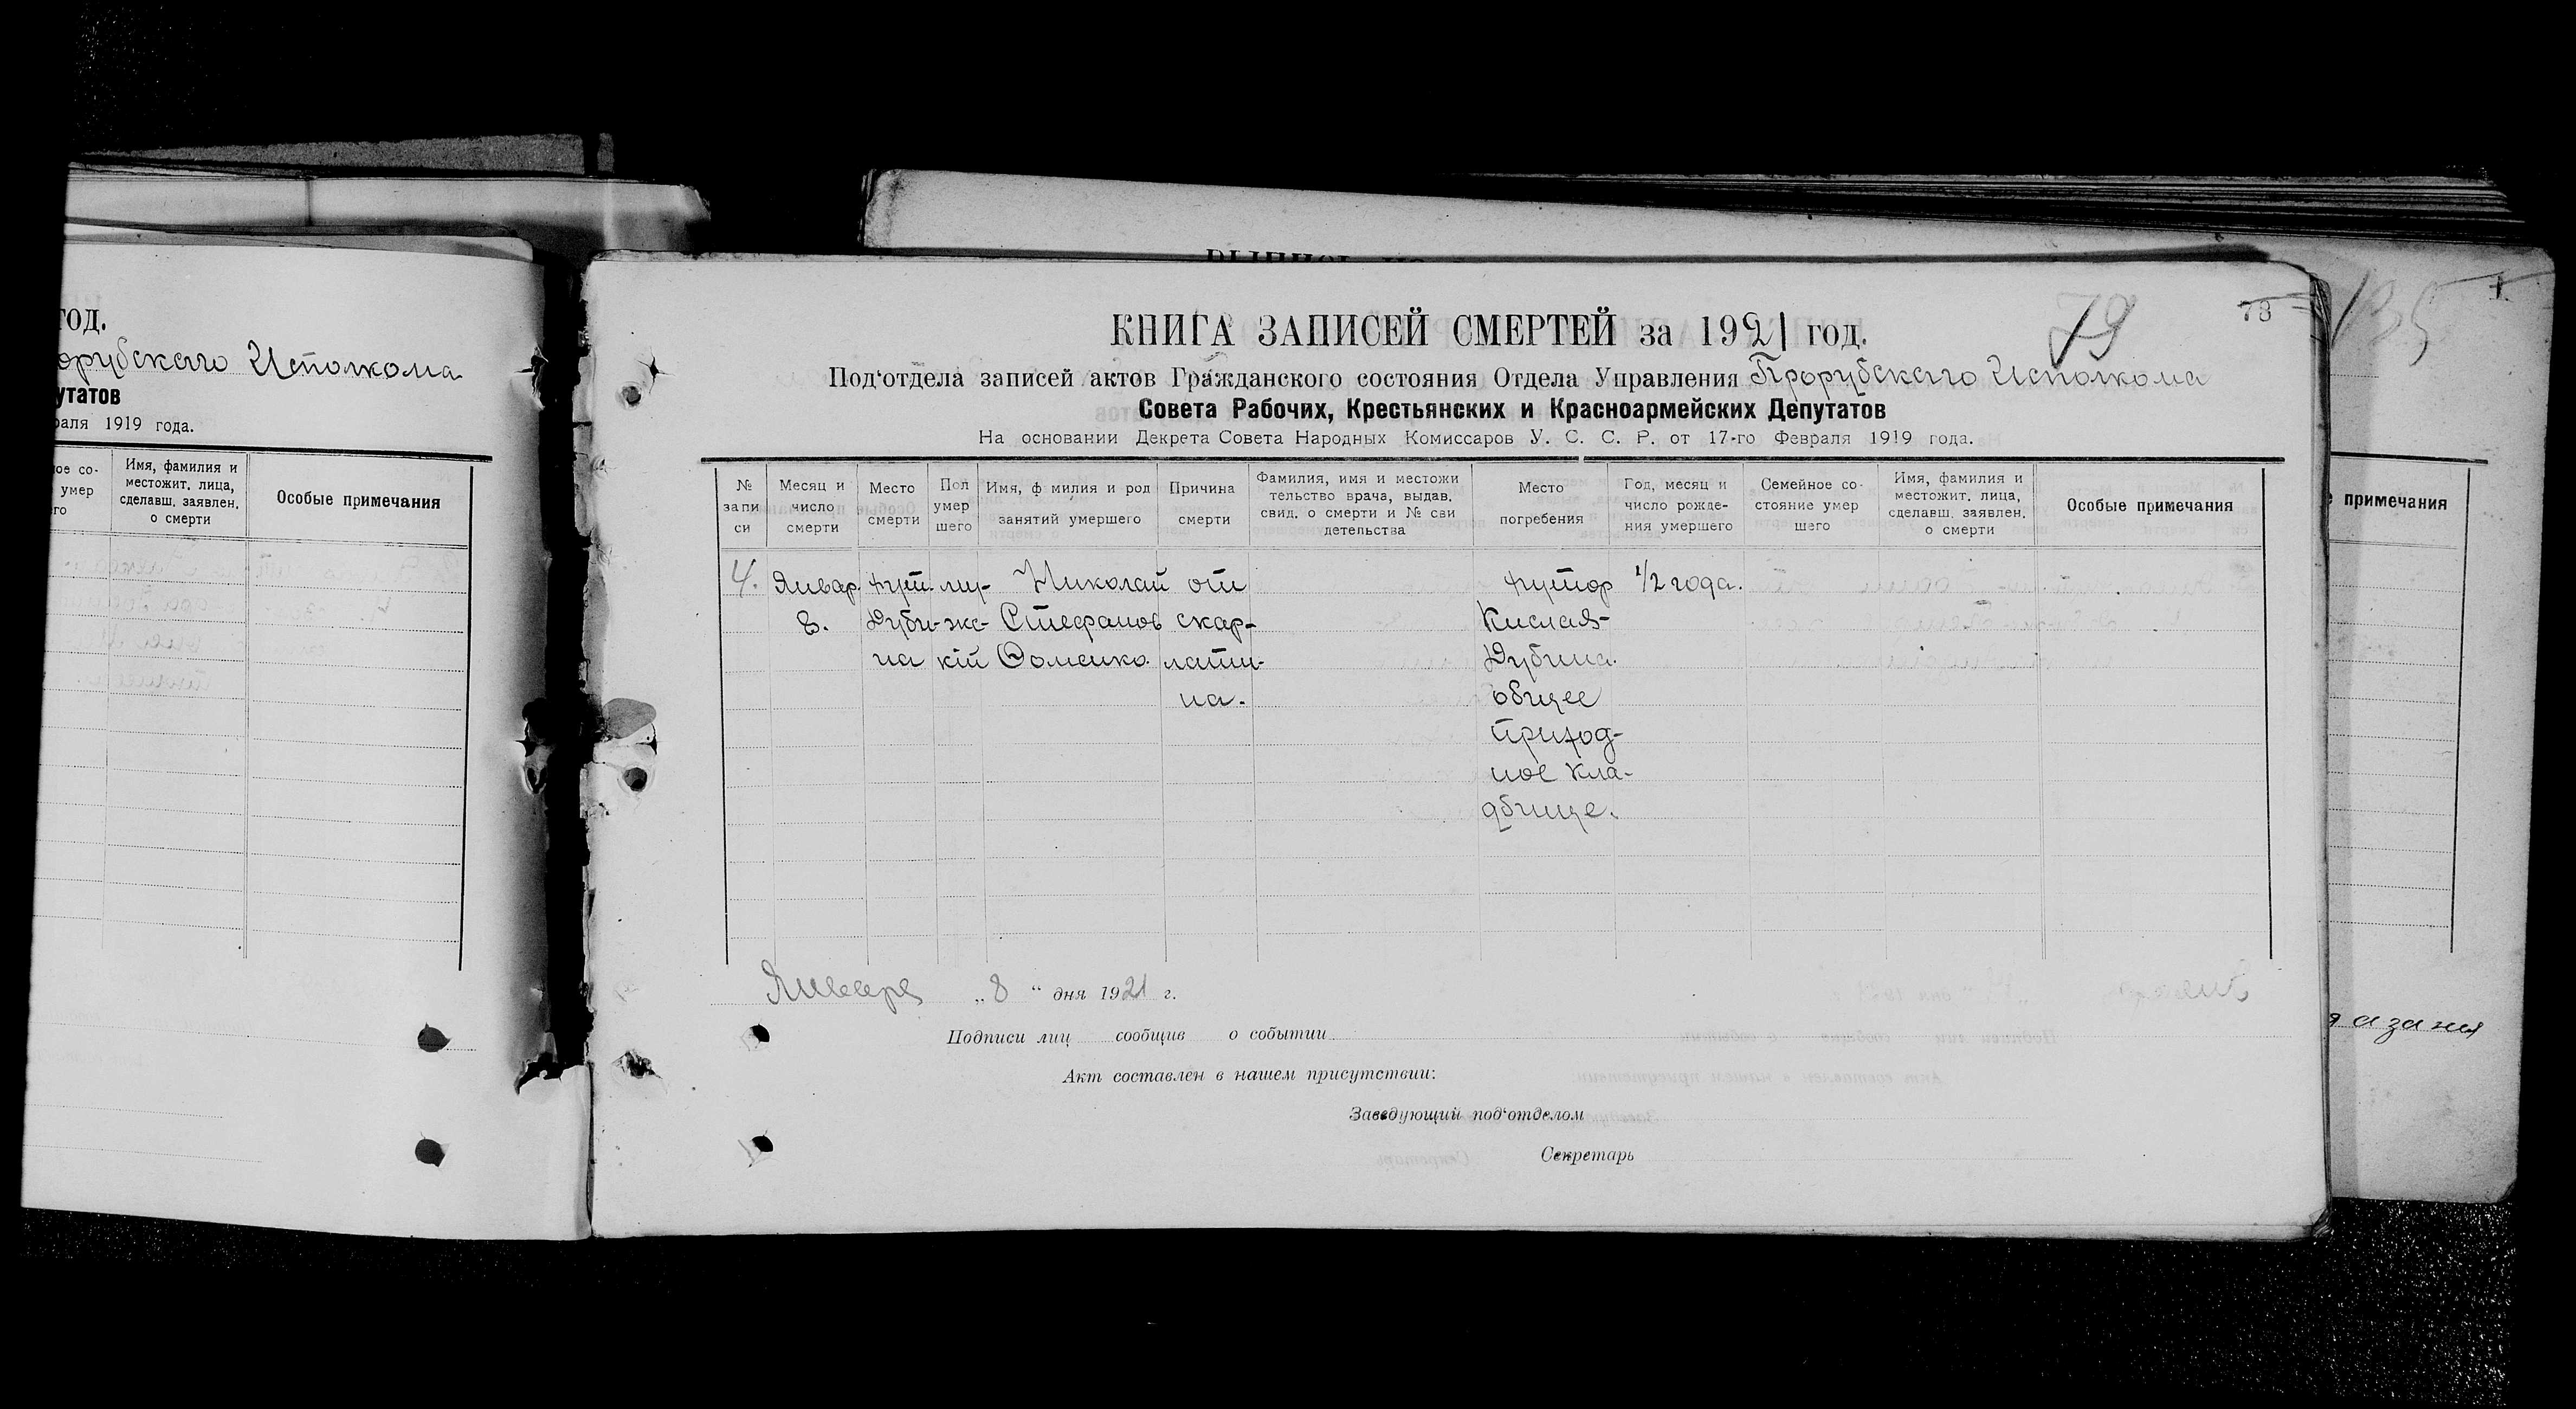 год.
орубскаго Исполкома
утатов
раля 1919 года.
ое со-
умер
го
Имя, фамилия и
местожит. лица,
сделавш. заявлен.
о смерти
Особые примечания
79
73
135
КНИГА ЗАПИСЕЙ СМЕРТЕЙ за 1921 год.
Под‘отдела записей актов Гражданского состояния Отдела Управления Прорубскаго Исполкома
Совета Рабочих, Крестьянских и Красноармейских Депутатов
На основании Декрета Совета Народных Комиссаров У. С. С. Р. от 17-го Февраля 1919 года.
№
запи
си
Месяц и
число
смерти
Место
смерти
Пол
умер
шего
Имя, ф милия и род
занятий умершего
Причина
смерти
Фамилия, имя и местожи
тельство врача, выдав.
свид. о смерти и № сви
детельства
Место
погребения
Год, месяц и
число рожде-
ния умершего
Семейное со-
стояние умер
шего
Имя, фамилия и
местожит. лица,
сделавш. заявлен.
о смерти
Особые примечания
е примечания
4.
Январ.
8.
хут.
Дуби-
на
му-
жс-
кій
Николай
Стефанов
Ѳоменко
от
скар-
лати-
на.
хутор
Кислая-
Дубина.
общее
приход-
ное кла-
дбище.
1/2 года.
Января „8“ дня 1921 г.
Подписи лиц сообщив о событии
Акт составлен в нашем присутствии:
Заведующий под‘отделом
Секретарь